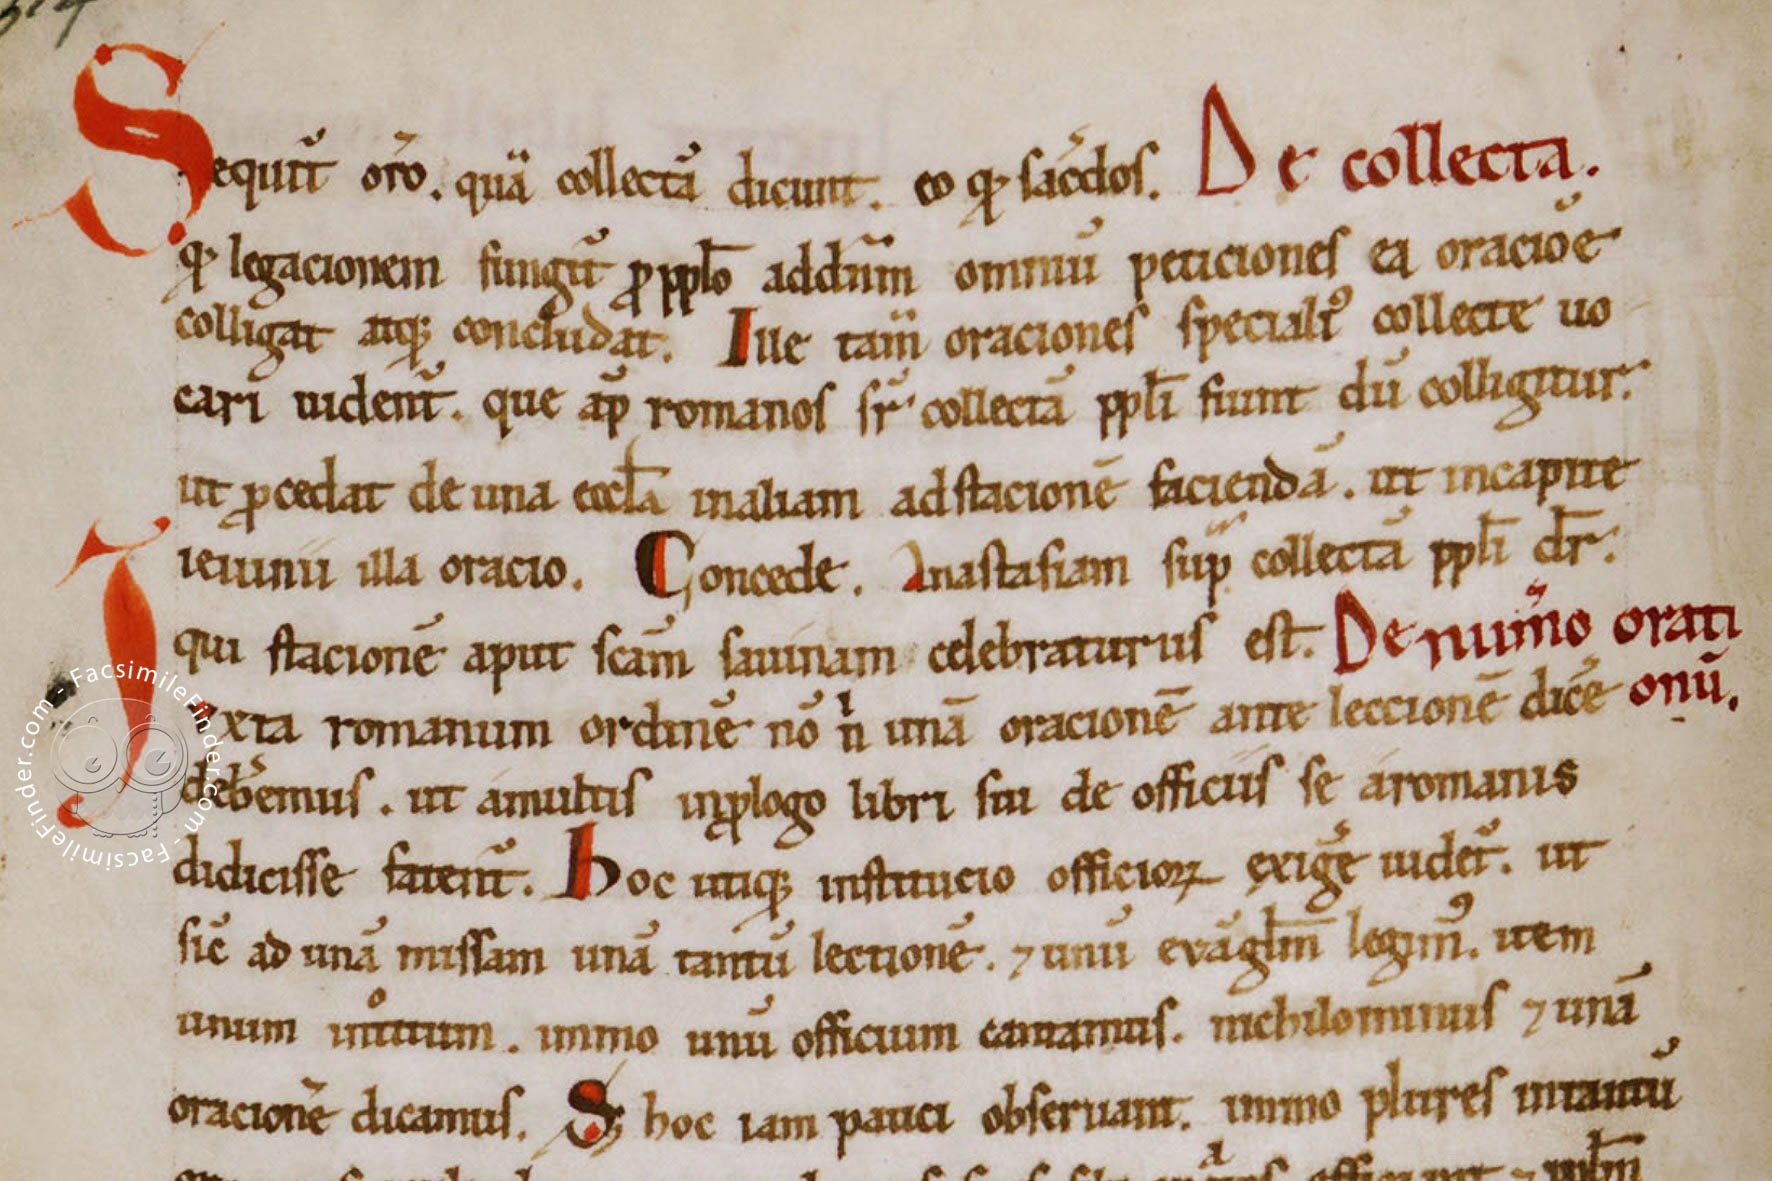 Sequit̄ or̄o. quā collectā dicunt. eo qꝫ sac̄dos. De collecta.
qꝫ legacionem fungit̄ ꝓ pplō ad dn̄m omniū peticiones ea oracioē
colligat atqꝫ concludat. Ille tam̄ oraciones specialiꝰ collecte uo
cari uident̄. que ap̄ romanos sr̄ collectā ppl̄i fiunt dū colligitur.
ut ꝓcedat de una eccl̄a in aliam ad stacionē faciendā. ut in capite
ieiunii illa oracio. Concede. Anastasiam sup̄ collectā ppl̄i dr̄.
qui stacionē aput sc̄am sauinam celebraturus est. De num̄o orati
Iuxta romanum ordinē nō n̄ unā oracionē ante leccionē dic̄e onū.
deb̄emus. ut a multis in ꝓlogo libri sui de officiis se a romanis
didicisse fatent̄. Hoc utiqꝫ institucio officioꝝ exiḡe uidet̄. ut
sic̄ ad unā missam unā tantū lectionē. ⁊ unū evāgl̄m legimꝰ. item
unum introitum. immo unū officium cantamus. nichilominus ⁊ unā
oracionē dicamus. Sꝫ hoc iam pauci obseruant. immo plures in tantū